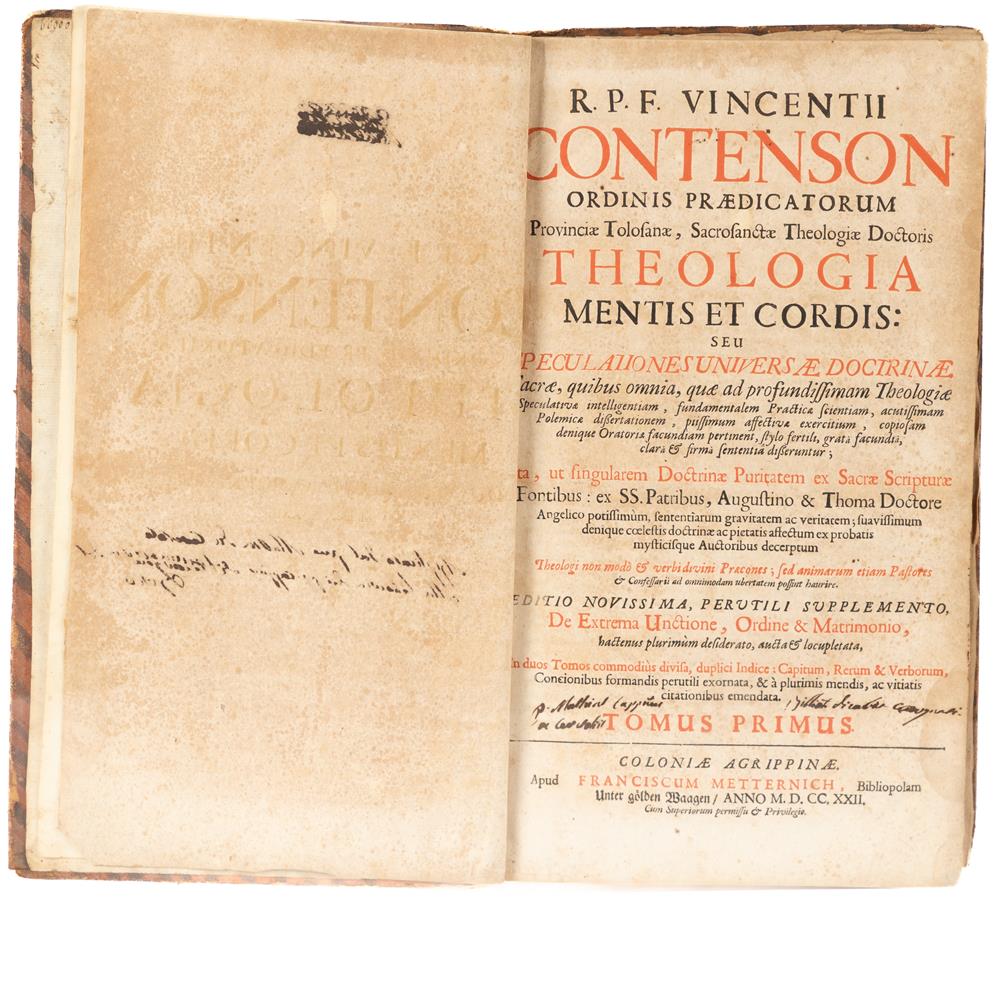 R. P. F. VINCENTII
CONTENSON
ORDINIS PRÆDICATORUM
Provinciæ Tolosanæ, Sacrosanctæ Theologiæ Doctoris
THEOLOGIA
MENTIS ET CORDIS:
SEU
SPECULATIONES UNIVERSÆ DOCTRINÆ
Sacræ, quibus omnia, quæ ad profundissimam Theologiæ
Speculativæ intelligentiam, fundamentalem Practicæ scientiam, acutissimam
Polemicæ dissertationem, piissimum affectivæ exercitium, copiosam
denique Oratoriæ facundiam pertinent, stylo fertili, gratâ facundiâ,
clarâ & firmâ sententiâ disseruntur;
ita, ut singularem Doctrinæ Puritatem ex Sacræ Scripturæ
Fontibus: ex SS. Patribus, Augustino & Thoma Doctore
Angelico potissimùm, sententiarum gravitatem ac veritatem; suavissimum
denique cœlestis doctrinæ ac pietatis affectum ex probatis
mysticisque Auctoribus decerptum
Theologi non modò & verbi divini Præcones; sed animarum etiam Pastores
& Confessarii ad omnimodam ubertatem possint haurire.
EDITIO NOVISSIMA, PERUTILI SUPPLEMENTO,
De Extrema Unctione, Ordine & Matrimonio,
hactenus plurimùm desiderato, aucta & locupletata,
In duos Tomos commodiùs divisa, duplici Indice: Capitum, Rerum & Verborum,
Concionibus formandis perutili exornata, & à plurimis mendis, ac vitiatis
citationibus emendata.
TOMUS PRIMUS.
COLONIÆ AGRIPPINÆ,
Apud FRANCISCUM METTERNICH, Bibliopolam
Unter gölden Waagen / ANNO M. D. CC. XXII.
Cum Superiorum permissu & Privilegio.